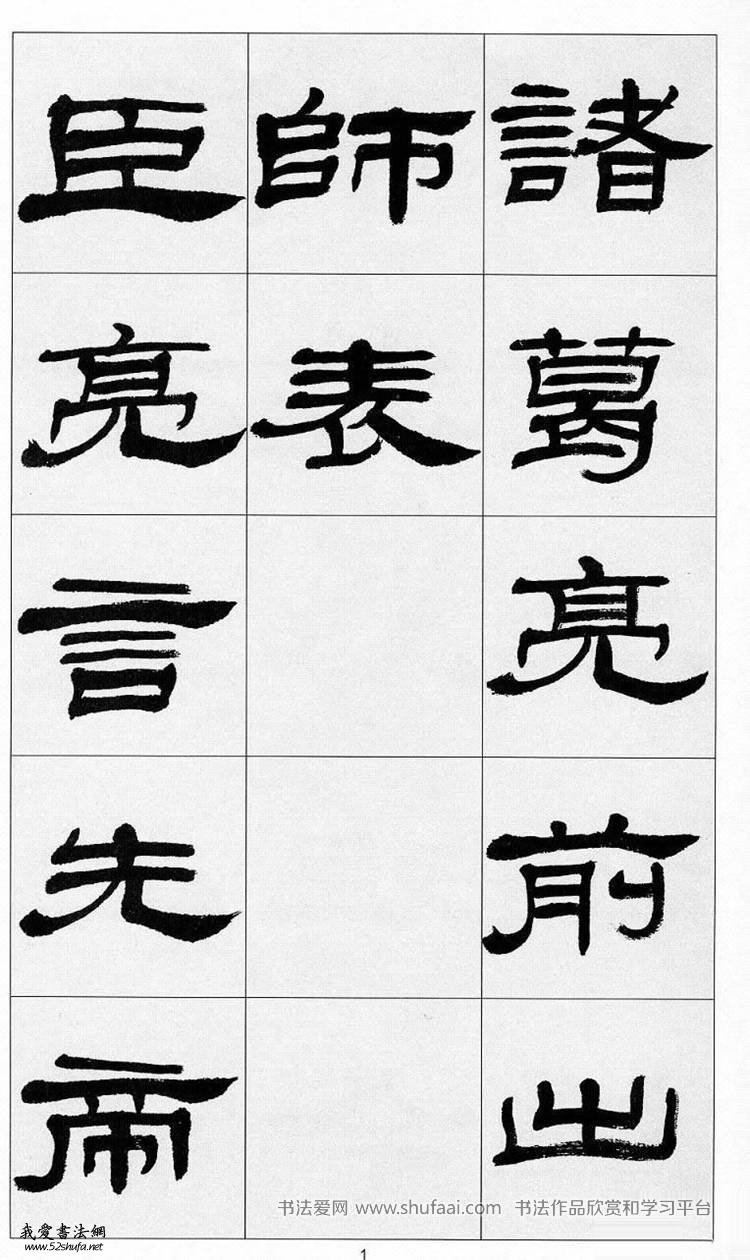 諸葛亮前出
師表
臣亮言先帝
书法爱网 www.shufaai.com 书法作品欣赏和学习平台
我爱書法網
www.52shufa.net
1